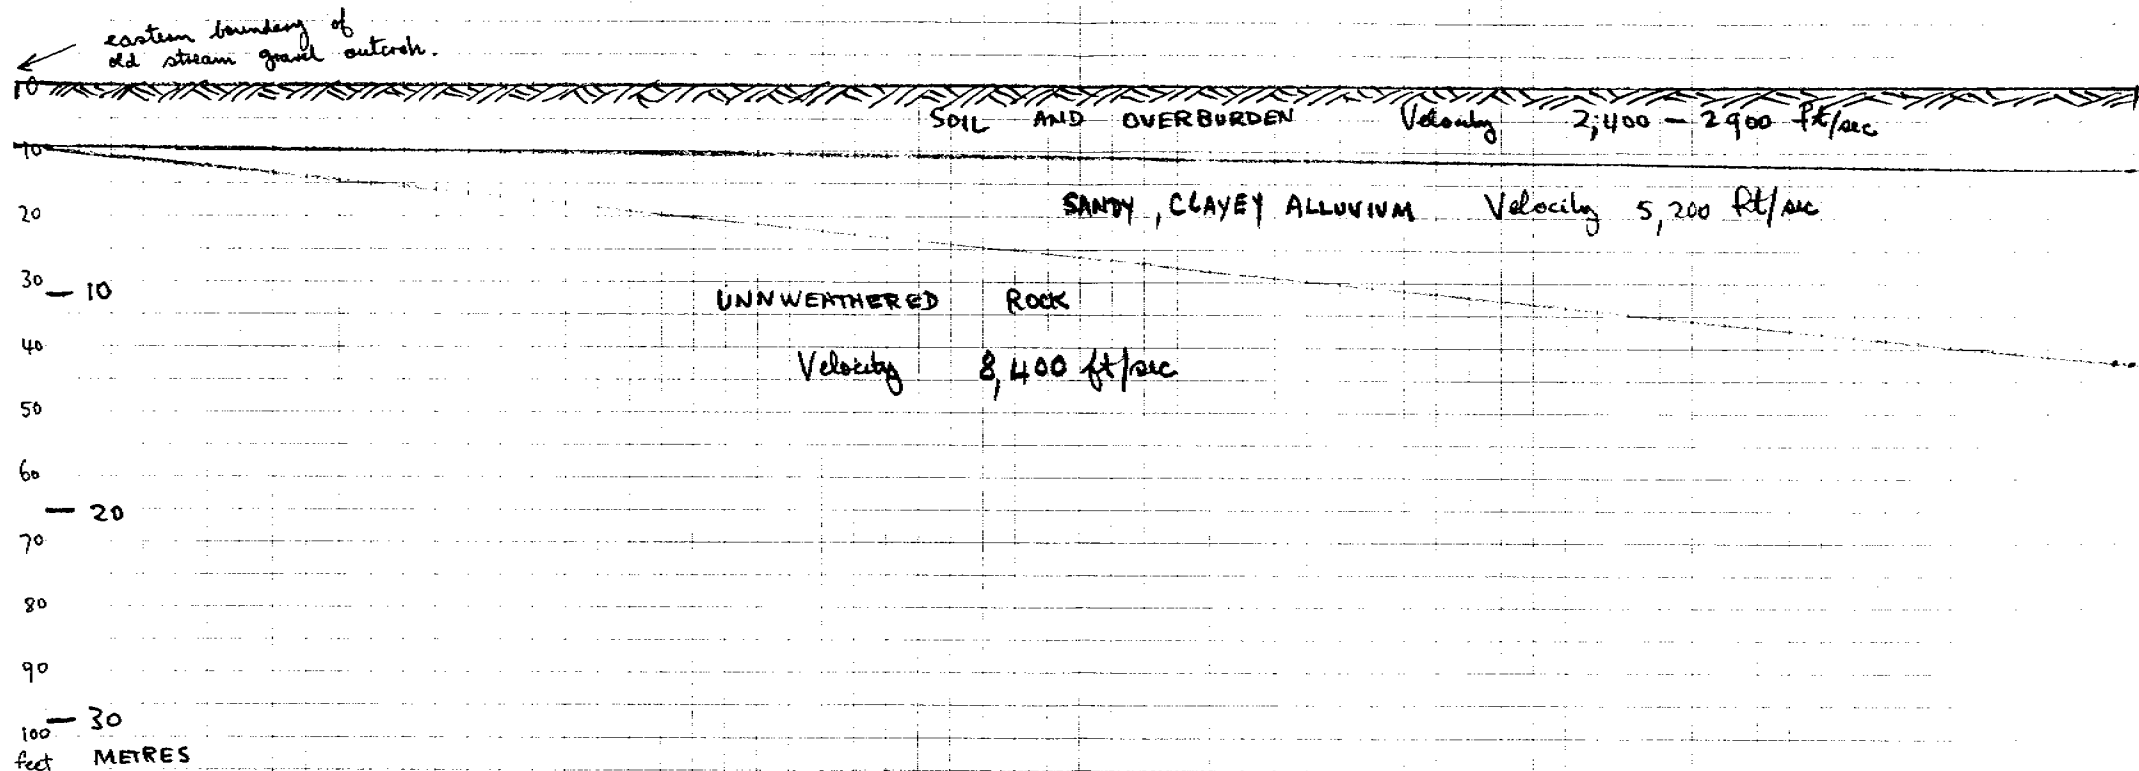 eastern boundary of
old stream gravel outcrop.
0
SOIL AND OVERBURDEN Velocity 2,400 – 2900 ft/sec
10
SANDY, CLAYEY ALLUVIUM Velocity 5,200 ft/sec
20
30 — 10
UNNWEATHERED ROCK
40
Velocity 8,400 ft/sec
50
60
— 20
70
80
90
— 30
100
feet METRES